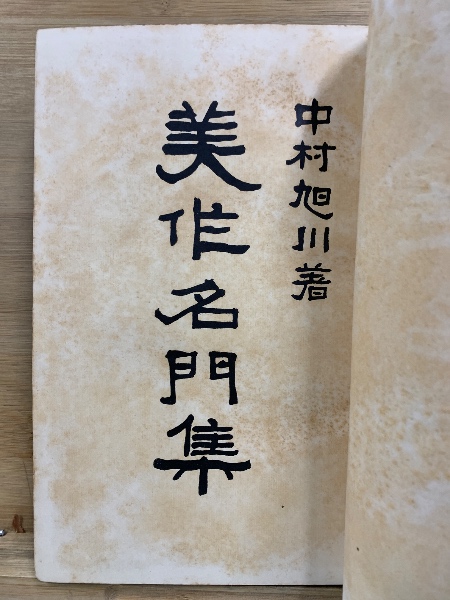 中村旭川著
美作名門集